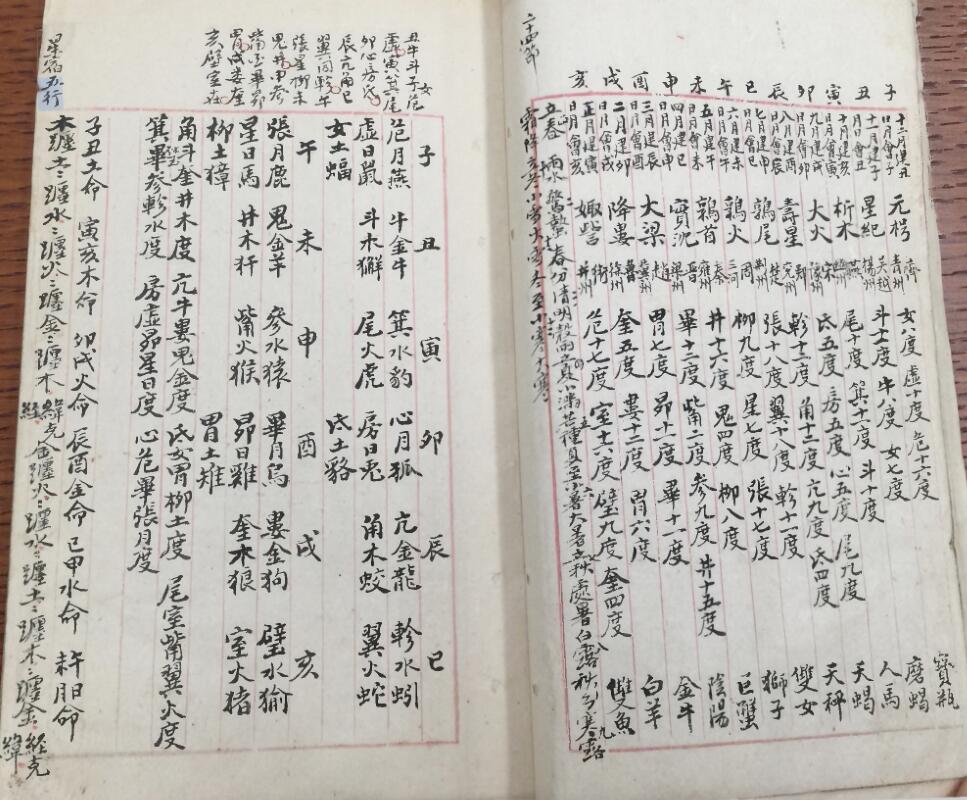 子 丑 寅 卯 辰 巳 午 未 申 酉 戌 亥
十二月建丑 日月會子 元枵 齊 青州 女八度 虛十度 危十六度 寶瓶
十一月建子 日月會丑 星紀 吳越 揚州 斗十一度 牛八度 女七度 磨蝎
十月建亥 日月會寅 析木 燕 幽州 尾十度 箕十一度 斗十度 人馬
九月建戌 日月會卯 大火 宋 豫州 氐五度 房五度 心五度 尾九度 天蝎
八月建酉 日月會辰 壽星 鄭 兗州 軫十三度 角十二度 亢九度 氐四度 天秤
七月建申 日月會巳 鶉尾 楚 荆州 張十八度 翼十八度 軫十一度 雙女
六月建未 日月會午 鶉火 周 三河 柳九度 星七度 張十七度 獅子
五月建午 日月會未 鶉首 秦 雍州 井十六度 鬼四度 柳八度 巨蟹
四月建巳 日月會申 實沈 晉 梁州 畢十二度 觜二度 參九度 井十五度 陰陽
三月建辰 日月會酉 大梁 趙 冀州 胃七度 昴十一度 畢十一度 金牛
二月建卯 日月會戌 降婁 魯 徐州 奎五度 婁十二度 胃六度 白羊
正月建寅 日月會亥 娵訾 衛 并州 危十七度 室十六度 壁九度 奎四度 雙魚
二十四節
立春 雨水 驚蟄 春分 清明 穀雨 立夏 小滿 芒種 夏至 小暑 大暑 立秋 處暑 白露 秋分 寒露
霜降 立冬 小雪 大雪 冬至 小寒 大寒
丑牛斗子危女
虛寅箕尾
卯心房氐
辰亢角巳
翼同軫午
張星柳未
鬼井申參
觜酉畢昴
胃戌婁奎
亥壁室
子 丑 寅 卯 辰 巳
危月燕 牛金牛 箕水豹 心月狐 亢金龍 軫水蚓
虛日鼠 斗木獬 尾火虎 房日兎 角木蛟 翼火蛇
女土蝠 氐土貉
午 未 申 酉 戌 亥
張月鹿 鬼金羊 參水猿 畢月烏 婁金狗 壁水㺄
星日馬 井木犴 觜火猴 昴日雞 奎木狼 室火猪
柳土獐 胃土雉
角斗奎井木度 亢牛婁鬼金度 氐女胃柳土度 尾室觜翼火度
箕畢參軫水度 房虛昴星日度 心危畢張月度
子丑土命 寅亥木命 卯戌火命 辰酉金命 巳申水命
星宿五行
木躔土土躔水水躔火火躔金金躔木 緯克 金躔火火躔水水躔土土躔木木躔金 経克